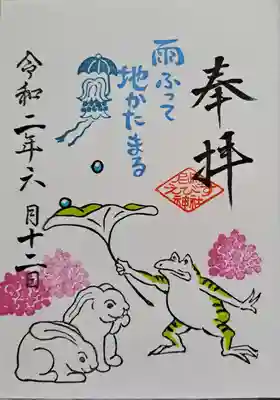 奉拝
雨ふって
地かたまる
令和二年六月十二日